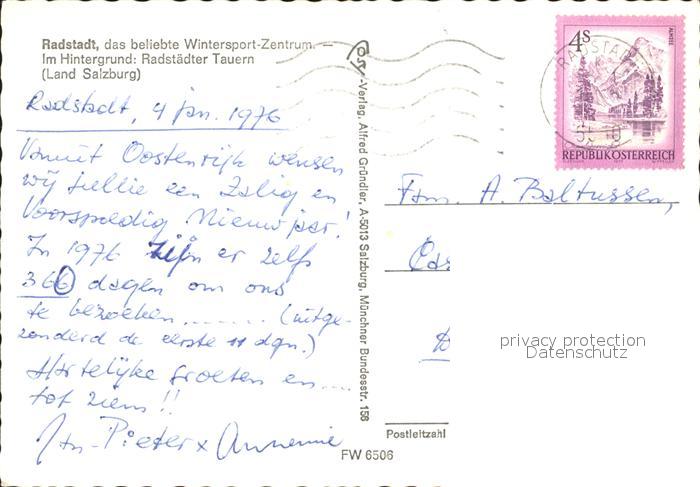 Radstadt, das beliebte Wintersport-Zentrum. —
Im Hintergrund: Radstädter Tauern
(Land Salzburg)
Radstadt, 4 jan. 1976
Vanuit Oostenrijk wensen
wij jullie een Zalig en
Voorspoedig Nieuwjaar!
In 1976 zijn er zelfs
366 dagen om ons
te bezoeken......... (uitge-
zonderd de eerste 11 dgn.)
Hartelijke groeten en....
tot ziens!!
Pieter x Annemie
-Verlag, Alfred Gründler, A-5013 Salzburg, Münchner Bundesstr. 158
FW 6506
4 S
ALMSEE
REPUBLIK ÖSTERREICH
RADSTADT
Fam. A. Baltussen,
privacy protection
Datenschutz
Postleitzahl